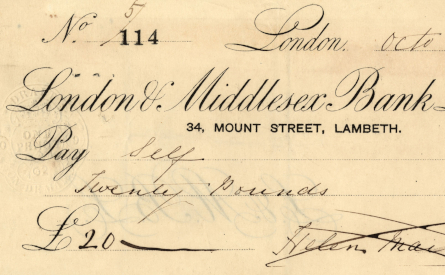 No 5/114 London. Octo
London & Middlesex Bank
34, MOUNT STREET, LAMBETH.
Pay Self
Twenty Pounds
£20
Helen